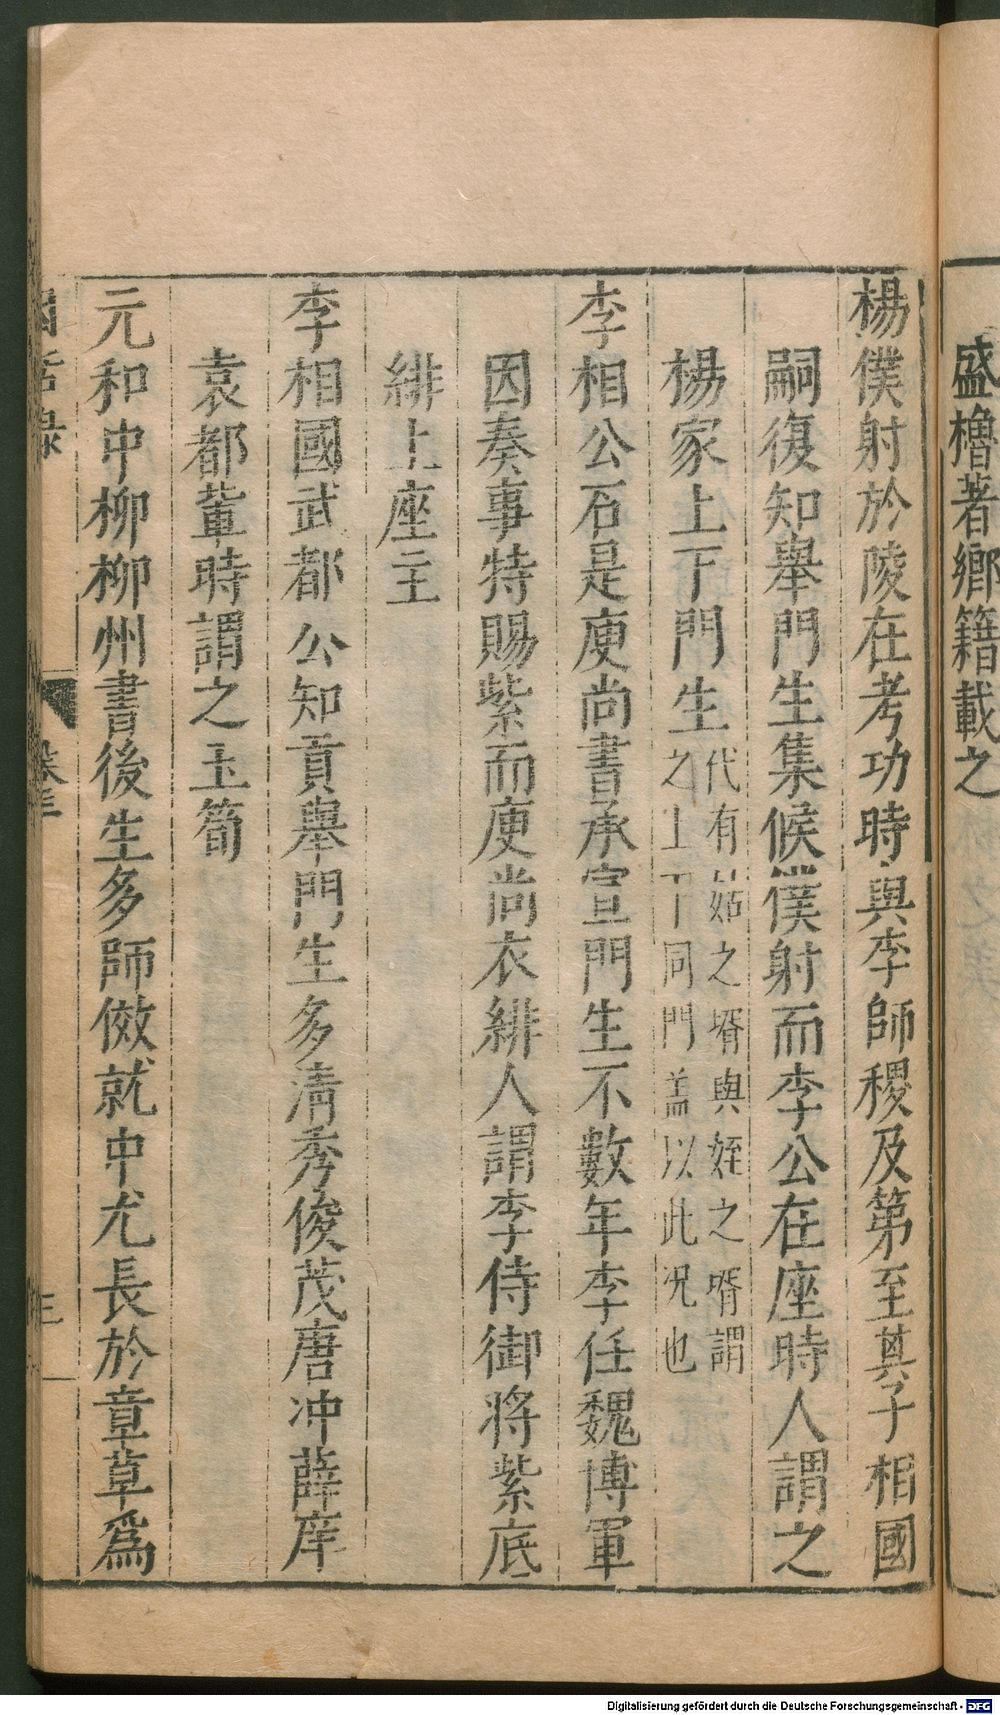 盛櫓著鄉籍載之
楊僕射於陵在考功時與李師稷及第至其子相國
嗣復知舉門生集候僕射而李公在座時人謂之
楊家上下門生代有姑之壻與姪之壻謂之上下同門蓋以此況也
李相公石是庾尚書承宣門生不數年李任魏博軍
因奏事特賜紫而庾尚衣緋人謂李侍御將紫底
緋上座主
李相國武都公知貢舉門生多清秀俊茂唐冲薛庠
袁都輩時謂之玉筍
元和中柳柳州書後生多師傚就中尤長於章草爲
因話錄 卷三 三
Digitalisierung gefördert durch die Deutsche Forschungsgemeinschaft - DFG